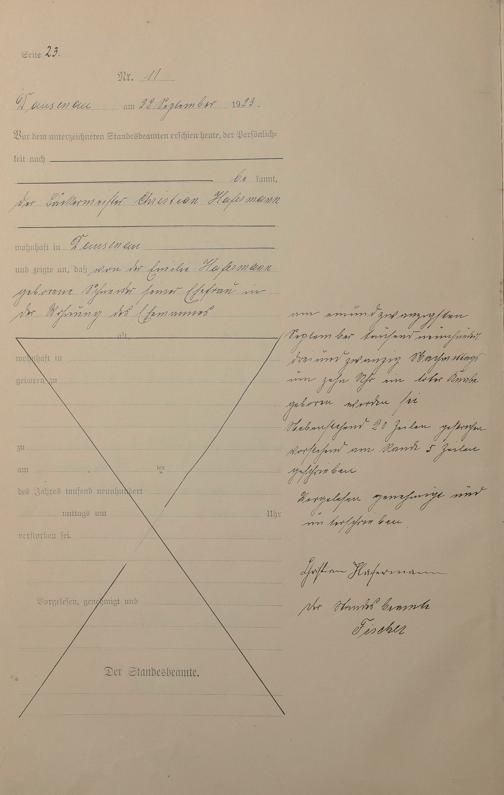 Seite 23.
Nr. 11
Dausenau am 22 September 1923.
Vor dem unterzeichneten Standesbeamten erschien heute, der Persönlich-
keit nach
be kannt,
der Bäckermeister Christian Hafermann
wohnhaft in Dausenau
und zeigte an, daß von der Emilie Hafermann
geborene Schneider seiner Ehefrau in
der Wohnung des Ehemannes
alt,
wohnhaft in
geboren zu
zu
am ten
des Jahres tausend neunhundert
mittags um Uhr
verstorben sei.
Vorgelesen, genehmigt und
Der Standesbeamte.
am einundzwanzigsten
September tausend neunhundert
dreiundzwanzig Nachmittags
um zehn Uhr ein toter Knabe
geboren worden sei
Nebenstehend 20 Zeilen gestrichen
vorstehend am Rande 5 Zeilen
geschrieben
Vorgelesen genehmigt und
unterschrieben
Christian Hafermann
Der Standesbeamte
Fischer